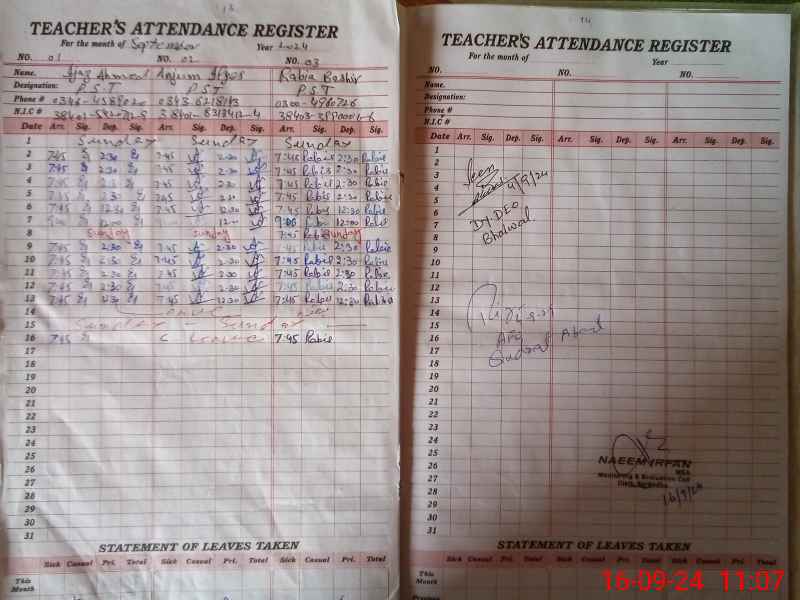 13
TEACHER'S ATTENDANCE REGISTER
For the month of September Year 2024
NO. 01 NO. 02 NO. 03
Name. Ijaz Ahmad Anjum Rabia Bashir
Designation: P.S.T PST PST
Phone # 0343-6218143 0300-4960726
N.I.C #
Date Arr. Sig. Dep. Sig. Arr. Sig. Dep. Sig. Arr. Sig. Dep. Sig.
1 Sunday Sunday Sunday
2 7:45 2:30 7:45 2:30 7:45 Rabia 2:30 Rabia
3 7:45 2:30 7:45 2:30 7:45 Rabia 2:30 Rabia
4 7:45 2:30 7:45 2:30 7:45 Rabia 2:30 Rabia
5 7:45 2:30 7:45 2:30 7:45 Rabia 2:30 Rabia
6 7:45 12:30 7:45 12:30 7:45 Rabia 12:30 Rabia
7 12:00 12:00 9:00 12:00 Rabia
8 Sunday Sunday 7:45 Sunday
9 7:45 2:30 7:45 2:30 7:45 Rabia 2:30 Rabia
10 7:45 2:30 7:45 2:30 7:45 Rabia 2:30 Rabia
11 7:45 2:30 7:45 2:30 7:45 Rabia 2:30 Rabia
12 7:45 2:30 7:45 2:30 7:45 Rabia 2:30 Rabia
13 7:45 12:30 7:45 12:30 7:45 Rabia 12:30 Rabia
14
15 Sunday - Sunday
16 7:45 C Leave 7:45 Rabia
17
18
19
20
21
22
23
24
25
26
27
28
29
30
31
STATEMENT OF LEAVES TAKEN
Sick Casual Pri. Total Sick Casual Pri. Total Sick Casual Pri. Total
This
Month
14
TEACHER'S ATTENDANCE REGISTER
For the month of Year
NO. NO. NO.
Name.
Designation:
Phone #
N.I.C #
Date Arr. Sig. Dep. Sig. Arr. Sig. Dep. Sig. Arr. Sig. Dep. Sig.
1
2
3 Seen
4 4/9/24
5
6
7 DY.DEO
8 Bhalwal
9
10
11
12
13
14
15
16 AEO
17
18
19
20
21
22
23
24
25
26 NAEEM IRFAN
MEA
27 Monitoring & Evaluation Cell
Distt. Sargodha
28 16/9/24
29
30
31
STATEMENT OF LEAVES TAKEN
Sick Casual Pri. Total Sick Casual Pri. Total Sick Casual Pri. Total
This
Month
Previous
16-09-24 11:07